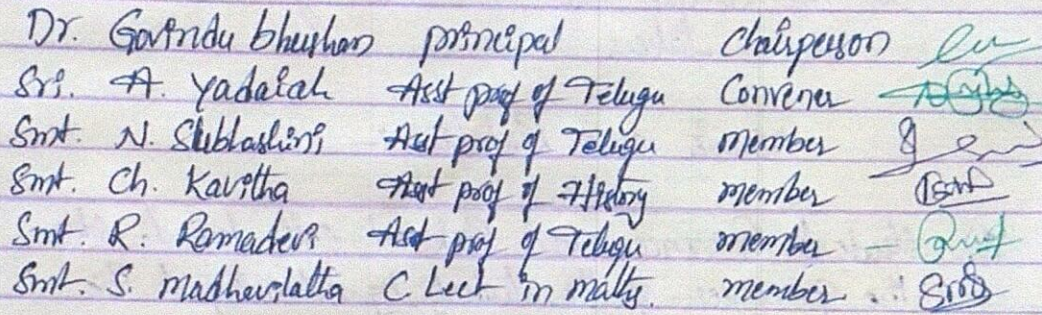 Dr. Govindu bhushan principal Chairperson
Sri. A. Yadaiah Asst prof of Telugu Convener
Smt. N. Subhashini Asst prof of Telugu member
Smt. Ch. Kavitha Asst prof of History member
Smt. R. Ramadevi Asst prof of Telugu member
Smt. S. Madhavilatha C Lect in maths. member